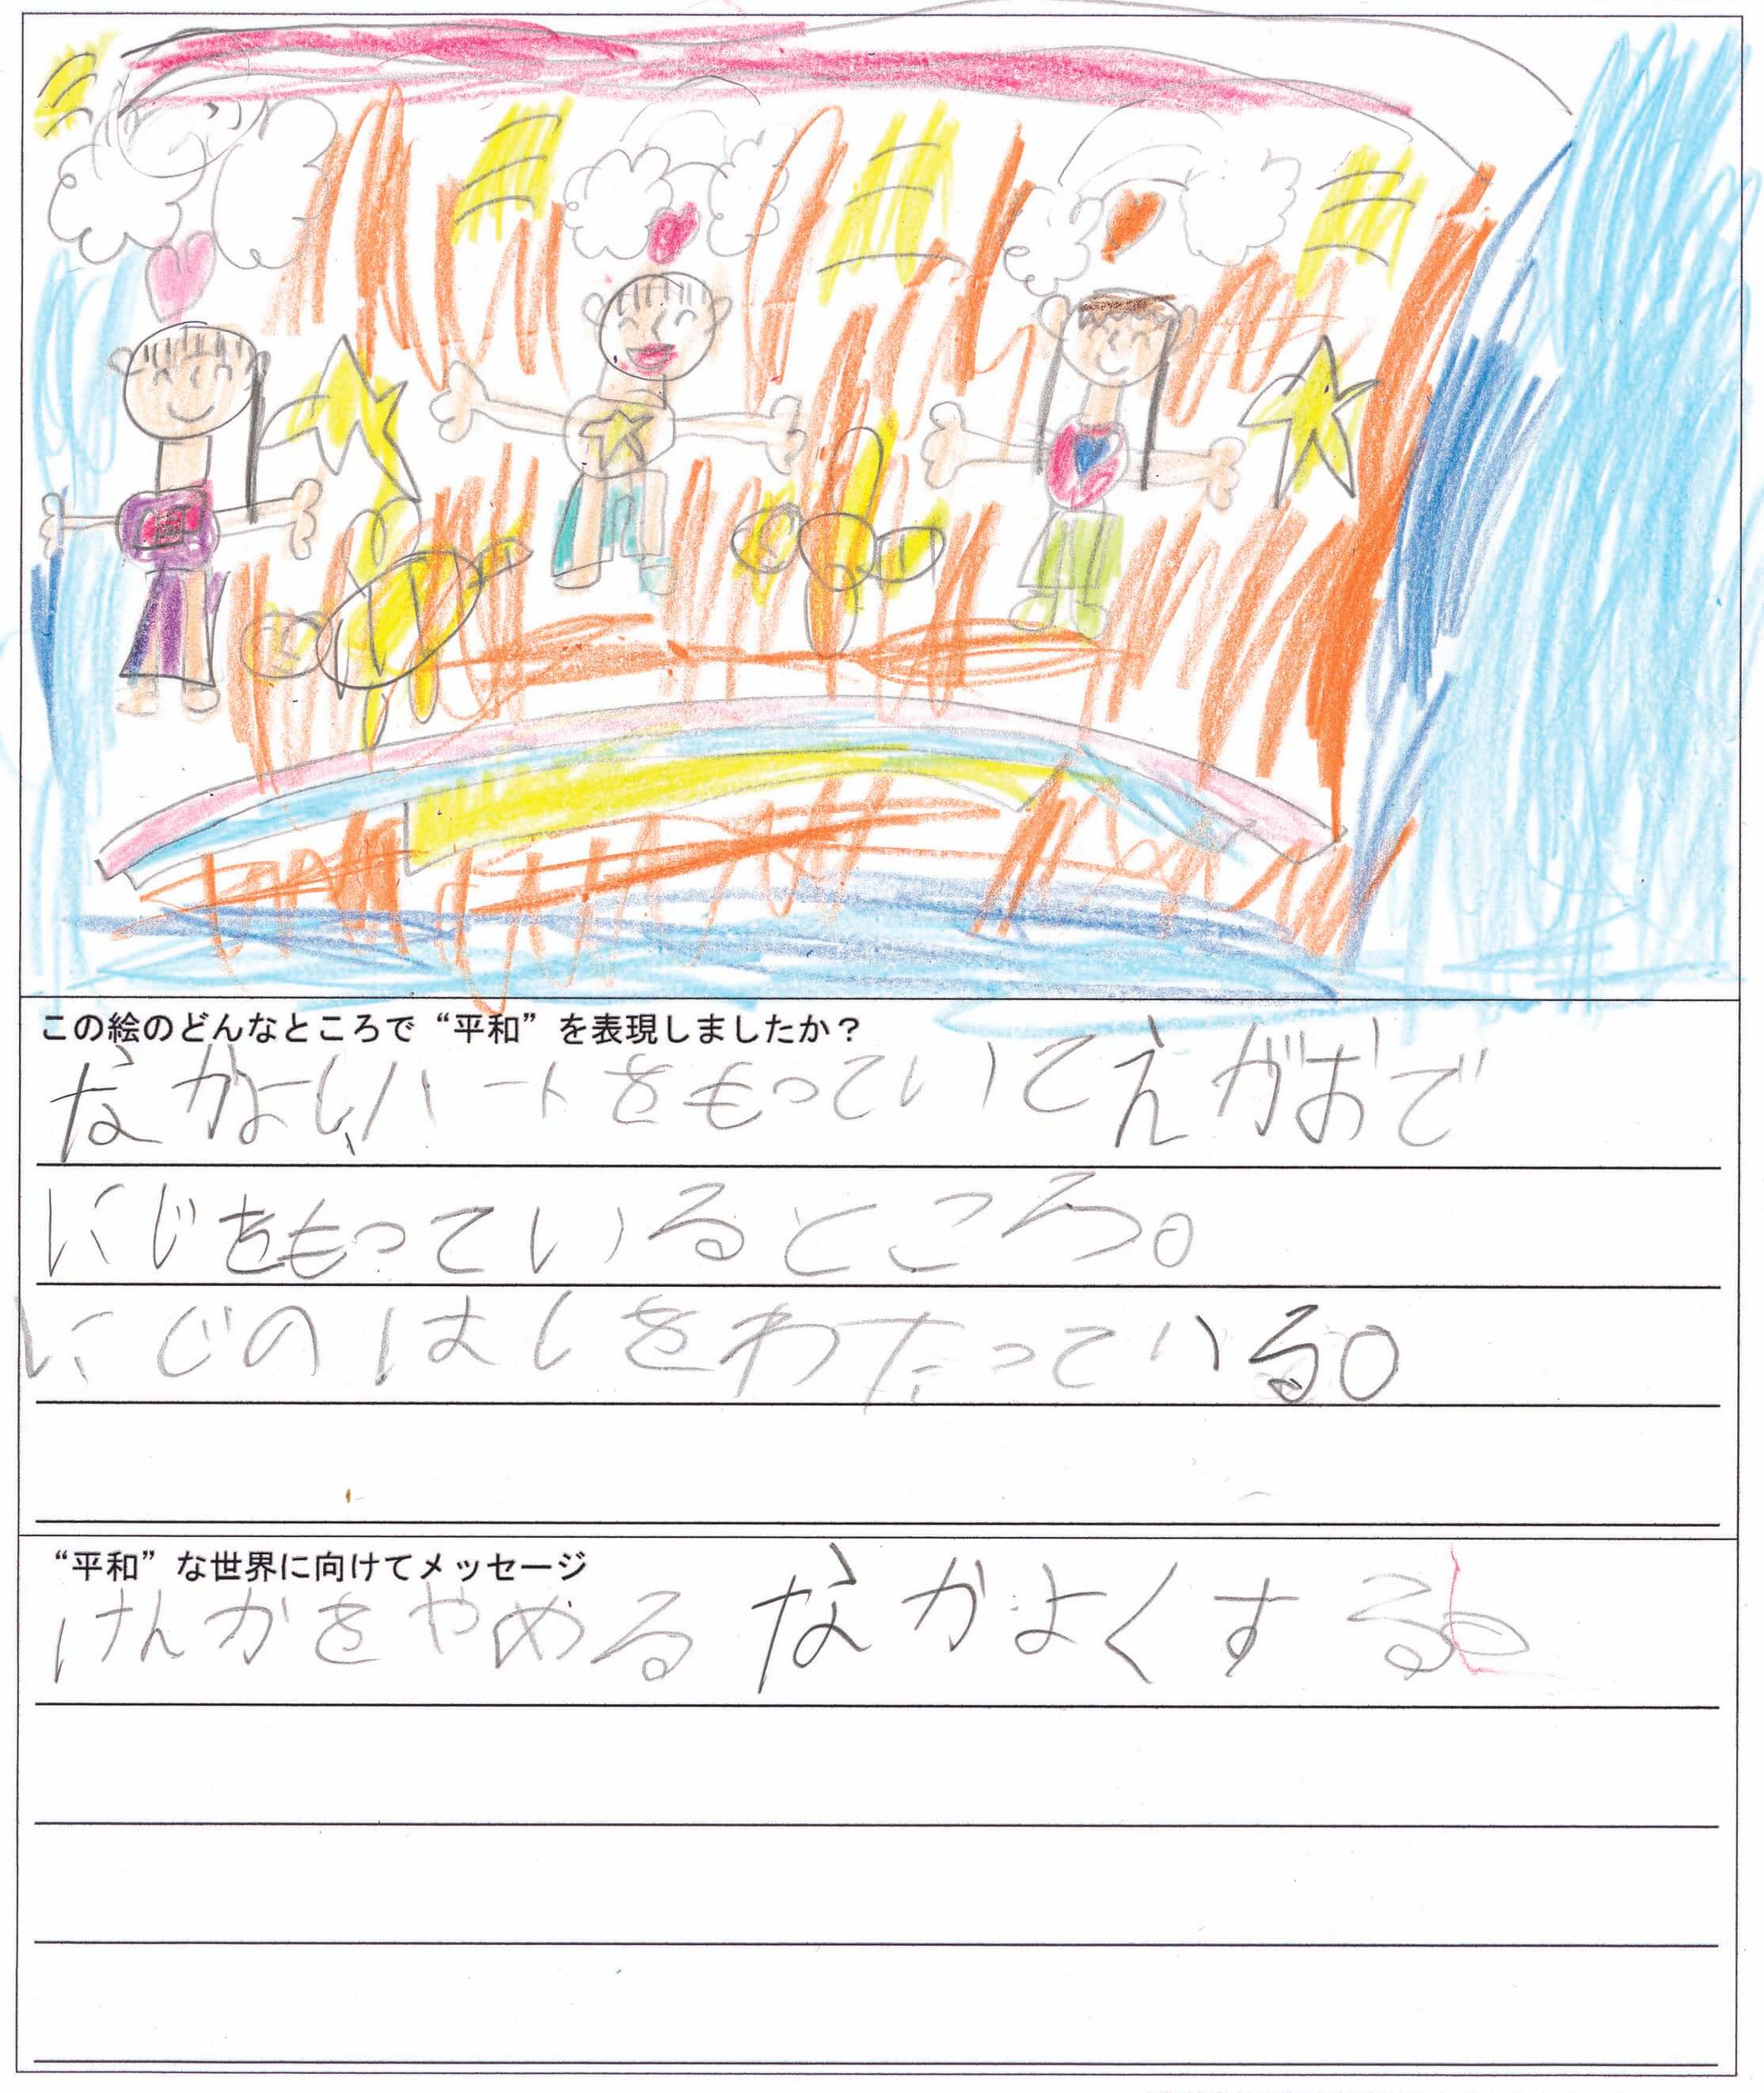 この絵のどんなところで“平和”を表現しましたか？
なかよしハートをもっていてえがおで
にじをもっているところ。
にじのはしをわたっている。
“平和”な世界に向けてメッセージ
けんかをやめる なかよくする